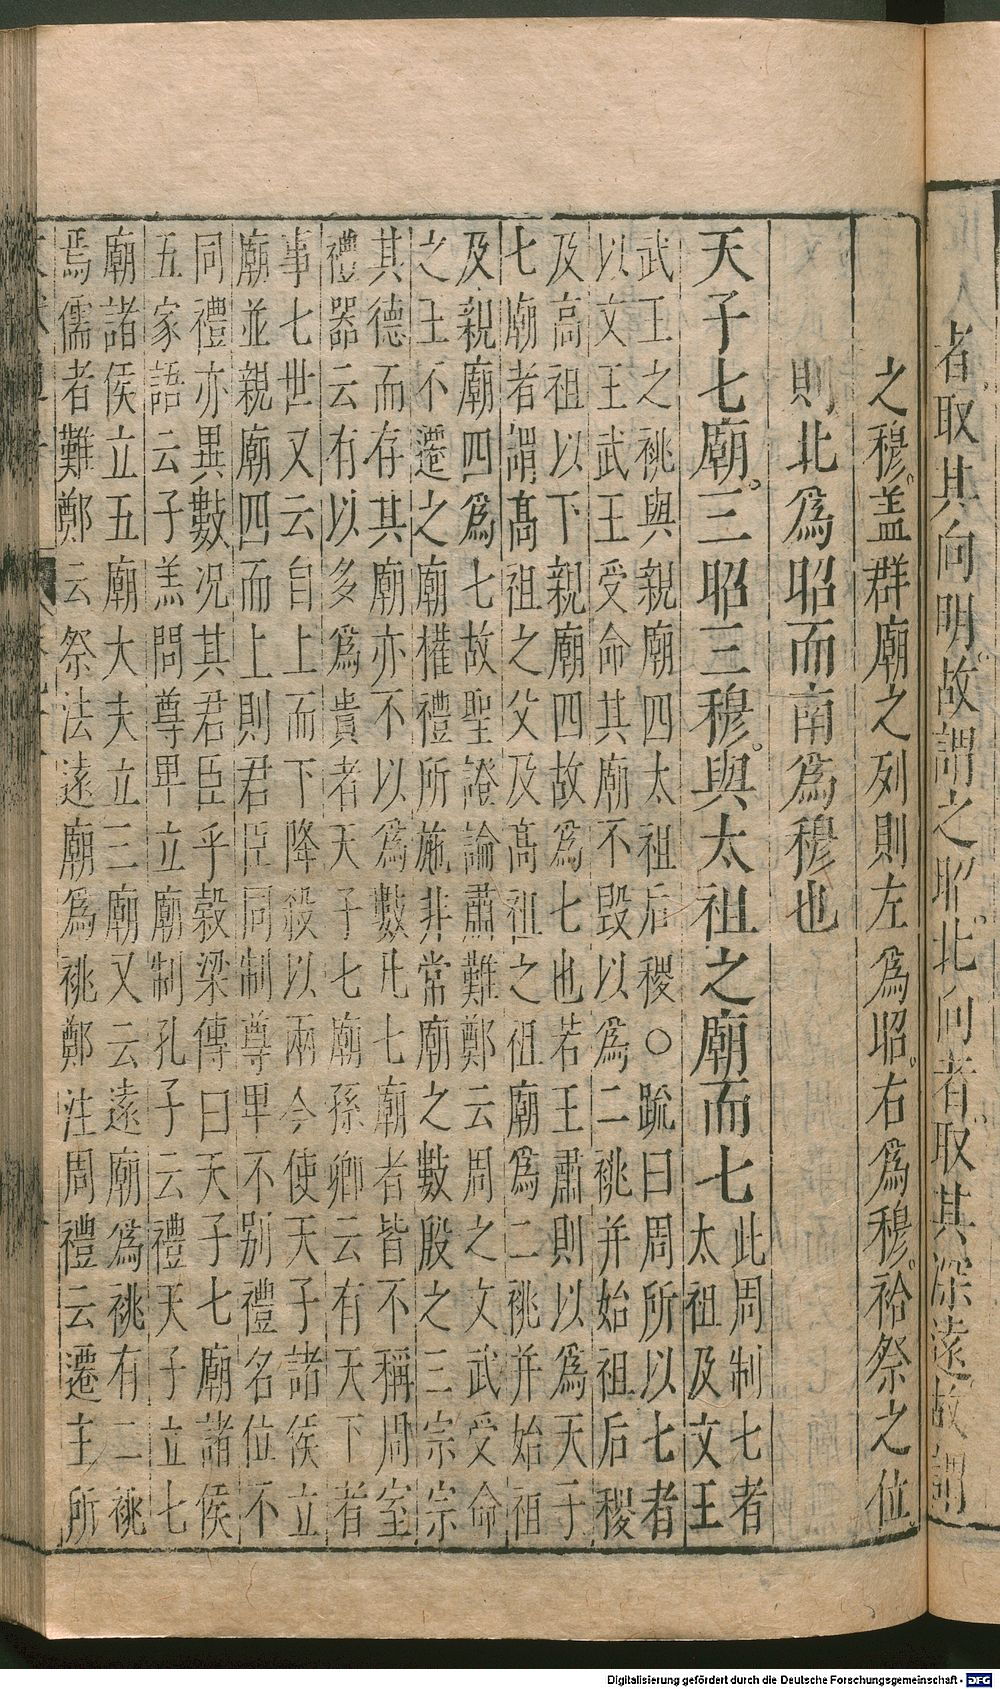 者取其向明故謂之昭北向者取其深遠故謂
之穆。盖群廟之列則左爲昭。右爲穆。祫祭之位。
則北爲昭而南爲穆也
天子七廟。三昭三穆。與太祖之廟而七
此周制七者
太祖及文王
武王之祧與親廟四太祖后稷○䟽曰周所以七者
以文王武王受命其廟不毀以爲二祧并始祖后稷
及高祖以下親廟四故爲七也若王肅則以爲天子
七廟者謂髙祖之父及髙祖之祖廟爲二祧并始祖
及親廟四爲七故聖證論肅難鄭云周之文武受命
之王不遷之廟權禮所施非常廟之數殷之三宗宗
其德而存其廟亦不以爲數凡七廟者皆不稱周室
禮器云有以多爲貴者天子七廟孫卿云有天下者
事七世又云自上而下降殺以兩今使天子諸侯立
廟並親廟四而上則君臣同制尊卑不别禮名位不
同禮亦異數况其君臣乎榖梁傳曰天子七廟諸侯
五家語云子羔問尊卑立廟制孔子云禮天子立七
廟諸侯立五廟大夫立三廟又云遠廟爲祧有二祧
焉儒者難鄭云祭法遠廟爲祧鄭注周禮云遷主所
Digitalisierung gefördert durch die Deutsche Forschungsgemeinschaft - DFG